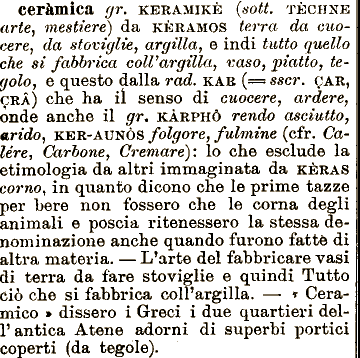 ceràmica gr. KERAMIKÈ (sott. TÈCHNE
arte, mestiere) da KÈRAMOS terra da cuo-
cere, da stoviglie, argilla, e indi tutto quello
che si fabbrica coll'argilla, vaso, piatto, te-
golo, e questo dalla rad. KAR (= sscr. ÇAR,
ÇRÂ) che ha il senso di cuocere, ardere,
onde anche il gr. KÀRPHÔ rendo asciutto,
arido, KER-AUNÒS folgore, fulmine (cfr. Ca-
lére, Carbone, Cremare): lo che esclude la
etimologia da altri immaginata da KÈRAS
corno, in quanto dicono che le prime tazze
per bere non fossero che le corna degli
animali e poscia ritenessero la stessa de-
nominazione anche quando furono fatte di
altra materia. — L'arte del fabbricare vasi
di terra da fare stoviglie e quindi Tutto
ciò che si fabbrica coll'argilla. — « Cera-
mico » dissero i Greci i due quartieri del-
l'antica Atene adorni di superbi portici
coperti (da tegole).